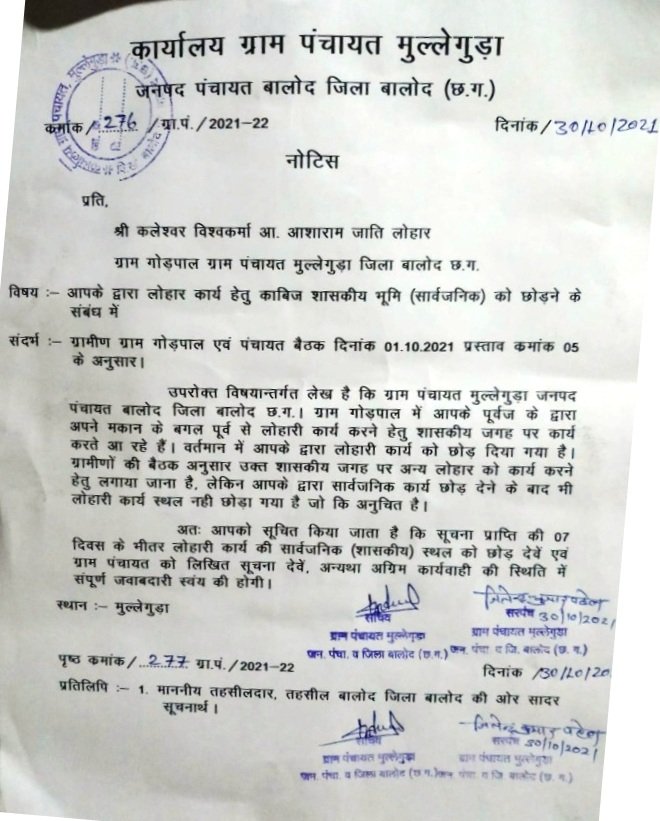 कार्यालय ग्राम पंचायत मुल्लेगुड़ा
जनपद पंचायत बालोद जिला बालोद (छ.ग.)
कमांक / 276 / ग्रा.पं. / 2021-22
दिनांक / 30/10/2021
नोटिस
प्रति,
श्री कलेश्वर विश्वकर्मा आ. आशाराम जाति लोहार
ग्राम गोड़पाल ग्राम पंचायत मुल्लेगुड़ा जिला बालोद छ.ग.
विषय :– आपके द्वारा लोहार कार्य हेतु काबिज शासकीय भूमि (सार्वजनिक) को छोड़ने के
संबंध में
संदर्भ :– ग्रामीण ग्राम गोड़पाल एवं पंचायत बैठक दिनांक 01.10.2021 प्रस्ताव कमांक 05
के अनुसार।
उपरोक्त विषयान्तर्गत लेख है कि ग्राम पंचायत मुल्लेगुड़ा जनपद
पंचायत बालोद जिला बालोद छ.ग.। ग्राम गोड़पाल में आपके पूर्वज के द्वारा
अपने मकान के बगल पूर्व से लोहारी कार्य करने हेतु शासकीय जगह पर कार्य
करते आ रहे हैं। वर्तमान में आपके द्वारा लोहारी कार्य को छोड़ दिया गया है।
ग्रामीणों की बैठक अनुसार उक्त शासकीय जगह पर अन्य लोहार को कार्य करने
हेतु लगाया जाना है, लेकिन आपके द्वारा सार्वजनिक कार्य छोड़ देने के बाद भी
लोहारी कार्य स्थल नही छोड़ा गया है जो कि अनुचित है।
अतः आपको सूचित किया जाता है कि सूचना प्राप्ति की 07
दिवस के भीतर लोहारी कार्य की सार्वजनिक (शासकीय) स्थल को छोड़ देवें एवं
ग्राम पंचायत को लिखित सूचना देवें, अन्यथा अग्रिम कार्यवाही की स्थिति में
संपूर्ण जवाबदारी स्वंय की होगी।
स्थान :– मुल्लेगुड़ा
जितेन्द्र कुमार पटेल
सचिव
सरपंच 30/10/2021
ग्राम पंचायत मुल्लेगुड़ा
ग्राम पंचायत मुल्लेगुड़ा
जन. पंचा. व जिला बालोद (छ.ग.)
जन. पंचा. व जि. बालोद (छ.ग.)
पृष्ठ कमांक / 277 ग्रा.पं. / 2021-22
दिनांक /30/10/20
प्रतिलिपि :– 1. माननीय तहसीलदार, तहसील बालोद जिला बालोद की ओर सादर
सूचनार्थ।
जितेन्द्र कुमार पटेल
सचिव
सरपंच 30/10/2021
ग्राम पंचायत मुल्लेगुड़ा
ग्राम पंचायत मुल्लेगुड़ा
जन. पंचा. व जिला बालोद (छ.ग.)
जन. पंचा. व जि. बालोद (छ.ग.)